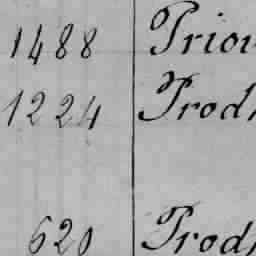 1488 Priou
1224 Prod
620 Prod